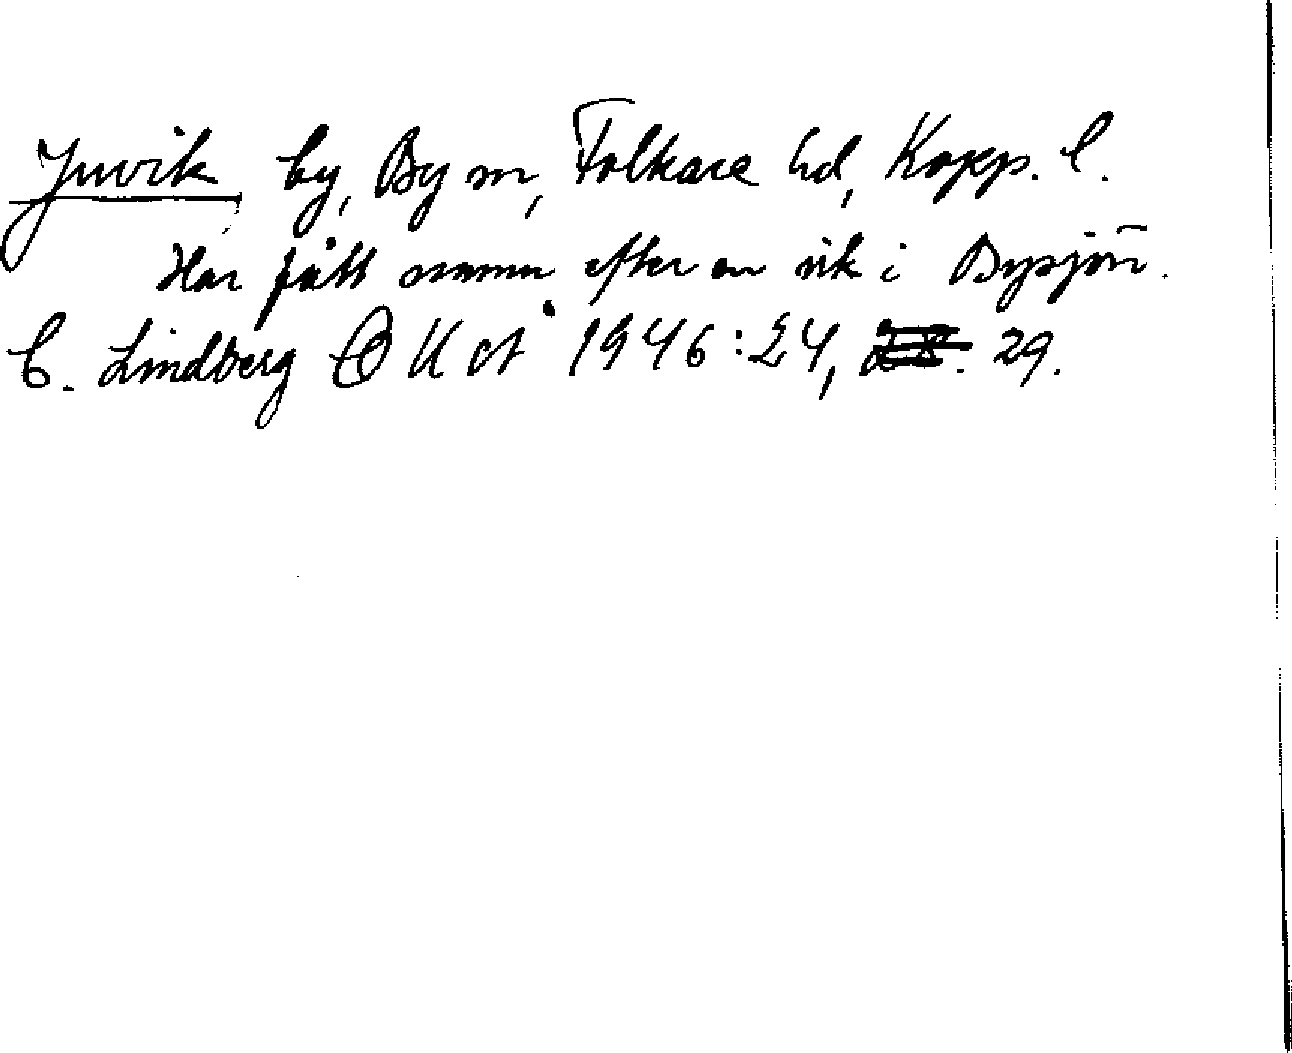 Juvik by, By sn, Folkare hd, Kopp. l.
Har fått namn efter en vik i Bysjön.
C. Lindberg 1946:24, 29.